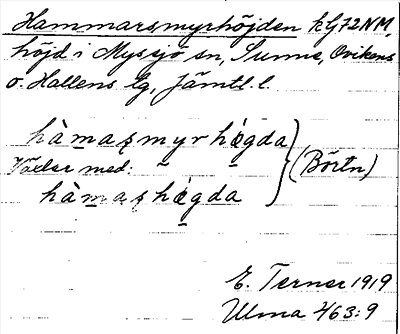 Hammarsmyrhöjden kG72NM,
höjd i Myssjö sn, Sunne, Ovikens
o. Hallens tg, Jämtl. l.
hàmaṣmyrhǿgda
Växlar med: (Börtn)
hàmaṣhǿgda
E. Terner 1919
Ulma 2/63:9